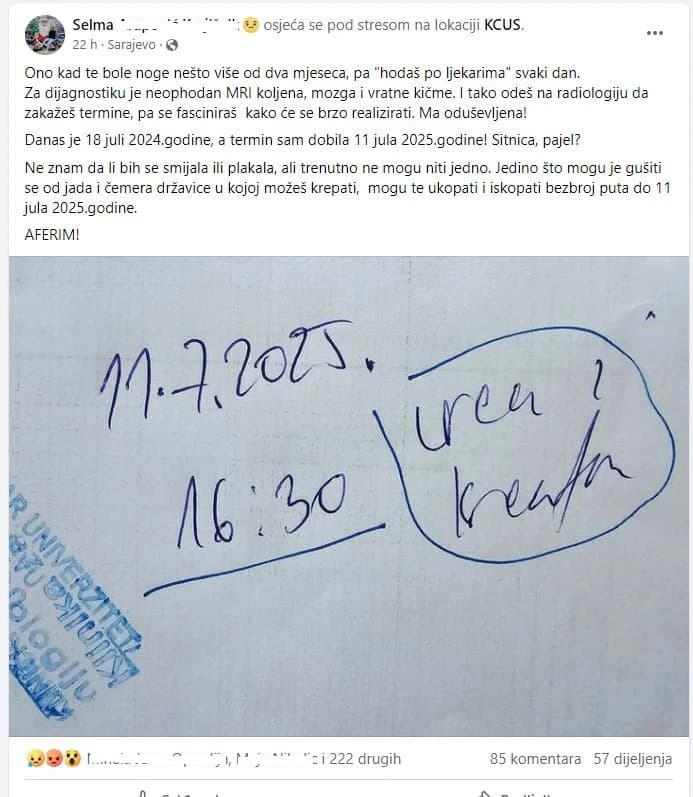 Selma
osjeća se pod stresom na lokaciji KCUS.
22 h · Sarajevo ·
Ono kad te bole noge nešto više od dva mjeseca, pa "hodaš po ljekarima" svaki dan.
Za dijagnostiku je neophodan MRI koljena, mozga i vratne kičme. I tako odeš na radiologiju da
zakažeš termine, pa se fasciniraš kako će se brzo realizirati. Ma oduševljena!
Danas je 18 juli 2024.godine, a termin sam dobila 11 jula 2025.godine! Sitnica, pajel?
Ne znam da li bih se smijala ili plakala, ali trenutno ne mogu niti jedno. Jedino što mogu je gušiti
se od jada i čemera državice u kojoj možeš krepati, mogu te ukopati i iskopati bezbroj puta do 11
jula 2025.godine.
AFERIM!
11.7.2025.
16:30
urea i
UNIVERZITET
i 222 drugih
85 komentara 57 dijeljenja